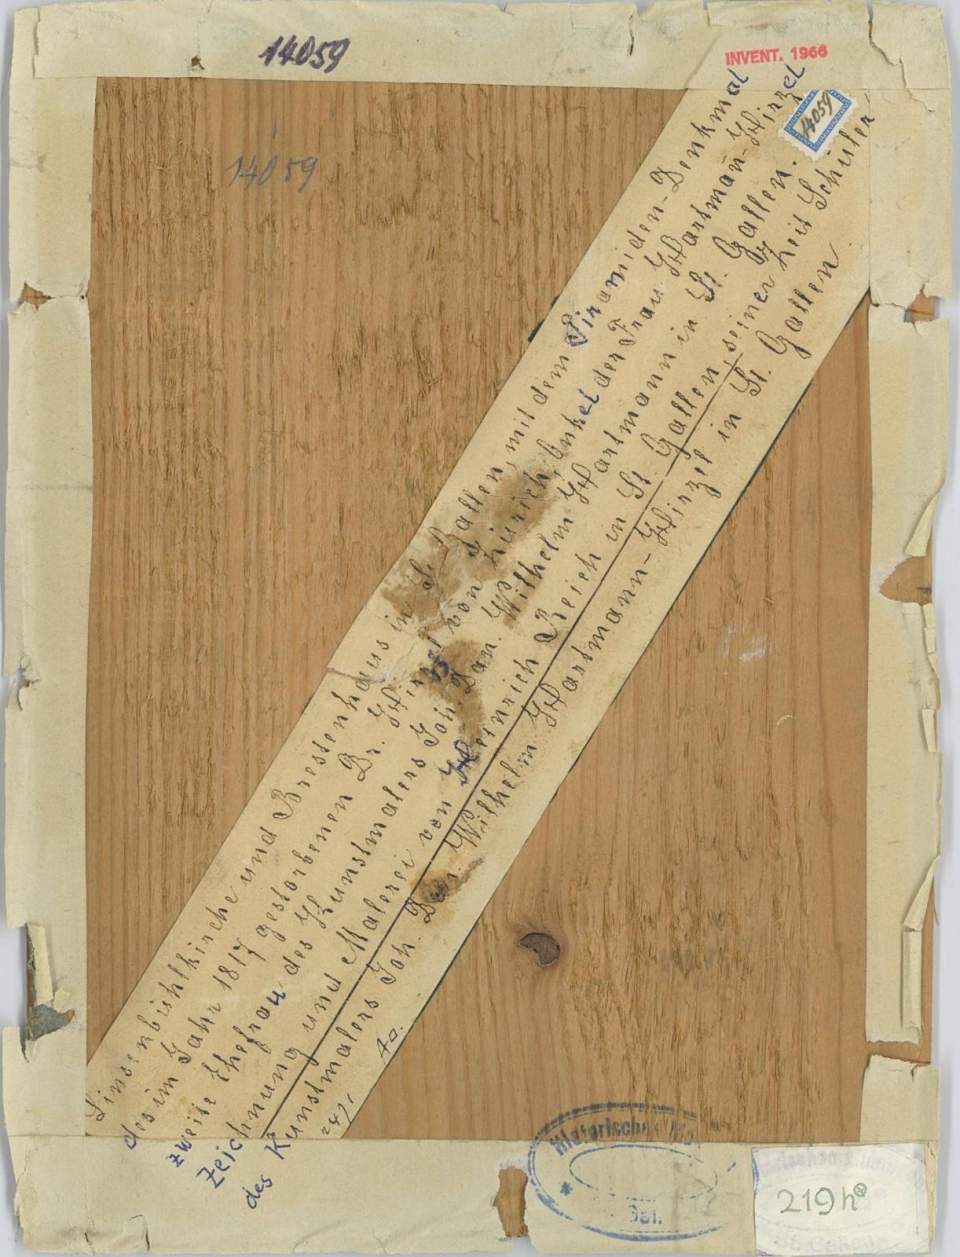 14059
INVENT. 1966
14059
14059
Linsenbühlkirche und Bressenhaus in St. Gallen, mit dem Piramiden-Denkmal
des im Jahr 1817 gestorbenen Dr. Hirzel von Zürich, Onkel der Frau Hartman̄-Hirzel
zweite Ehefrau des Kunstmalers Joh. Dan. Wilhelm Hartmann in St. Gallen.
Zeichnung und Malerei von Heinrich Reich in St. Gallen, seiner Zeit Schüler
des Kunstmalers Joh. Dan. Wilhelm Hartmann-Hirzel in St. Gallen.
Historisches
219h